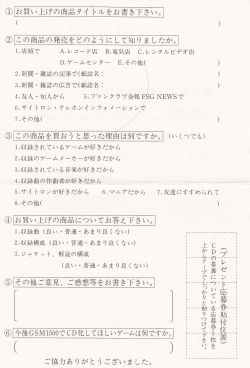 ①お買い上げの商品タイトルをお書き下さい。
(　　　)
②この商品の発売をどのようにして知りましたか。
1.店頭で　A.レコード店　B.電気店　C.レンタルビデオ店
D.ゲームセンター　E.その他(　　　)
2.新聞・雑誌の記事で(紙誌名：　　　)
3.新聞・雑誌の広告で(紙誌名：　　　)
4.友人・知人から　5.ファンクラブ会報FSG NEWSで
6.サイトロン・テレホンインフォメーションで
7.その他(　　　)
③この商品を買おうと思った理由は何ですか。(いくつでも)
1.収録されているゲームが好きだから
2.収録されているゲームメーカーが好きだから
3.収録されている音楽が好きだから
4.収録曲の作曲者が好きだから
5.サイトロンが好きだから　6.マニアだから　7.友達にすすめられて
8.その他(　　　)
④お買い上げの商品についてお答え下さい。
1.収録曲（良い・普通・あまり良くない）
2.収録構成（良い・普通・あまり良くない）
3.ジャケット、解説の構成
（良い・普通・あまり良くない）
⑤その他ご意見、ご感想等をお書き下さい。
⑥今後GSM1500でCD化してほしいゲームは何ですか。
ご協力ありがとうございました。
(プレゼント応募券貼付位置)
CDの帯裏についている応募券を枚
上からテープでしっかりと貼りつけて下さい。